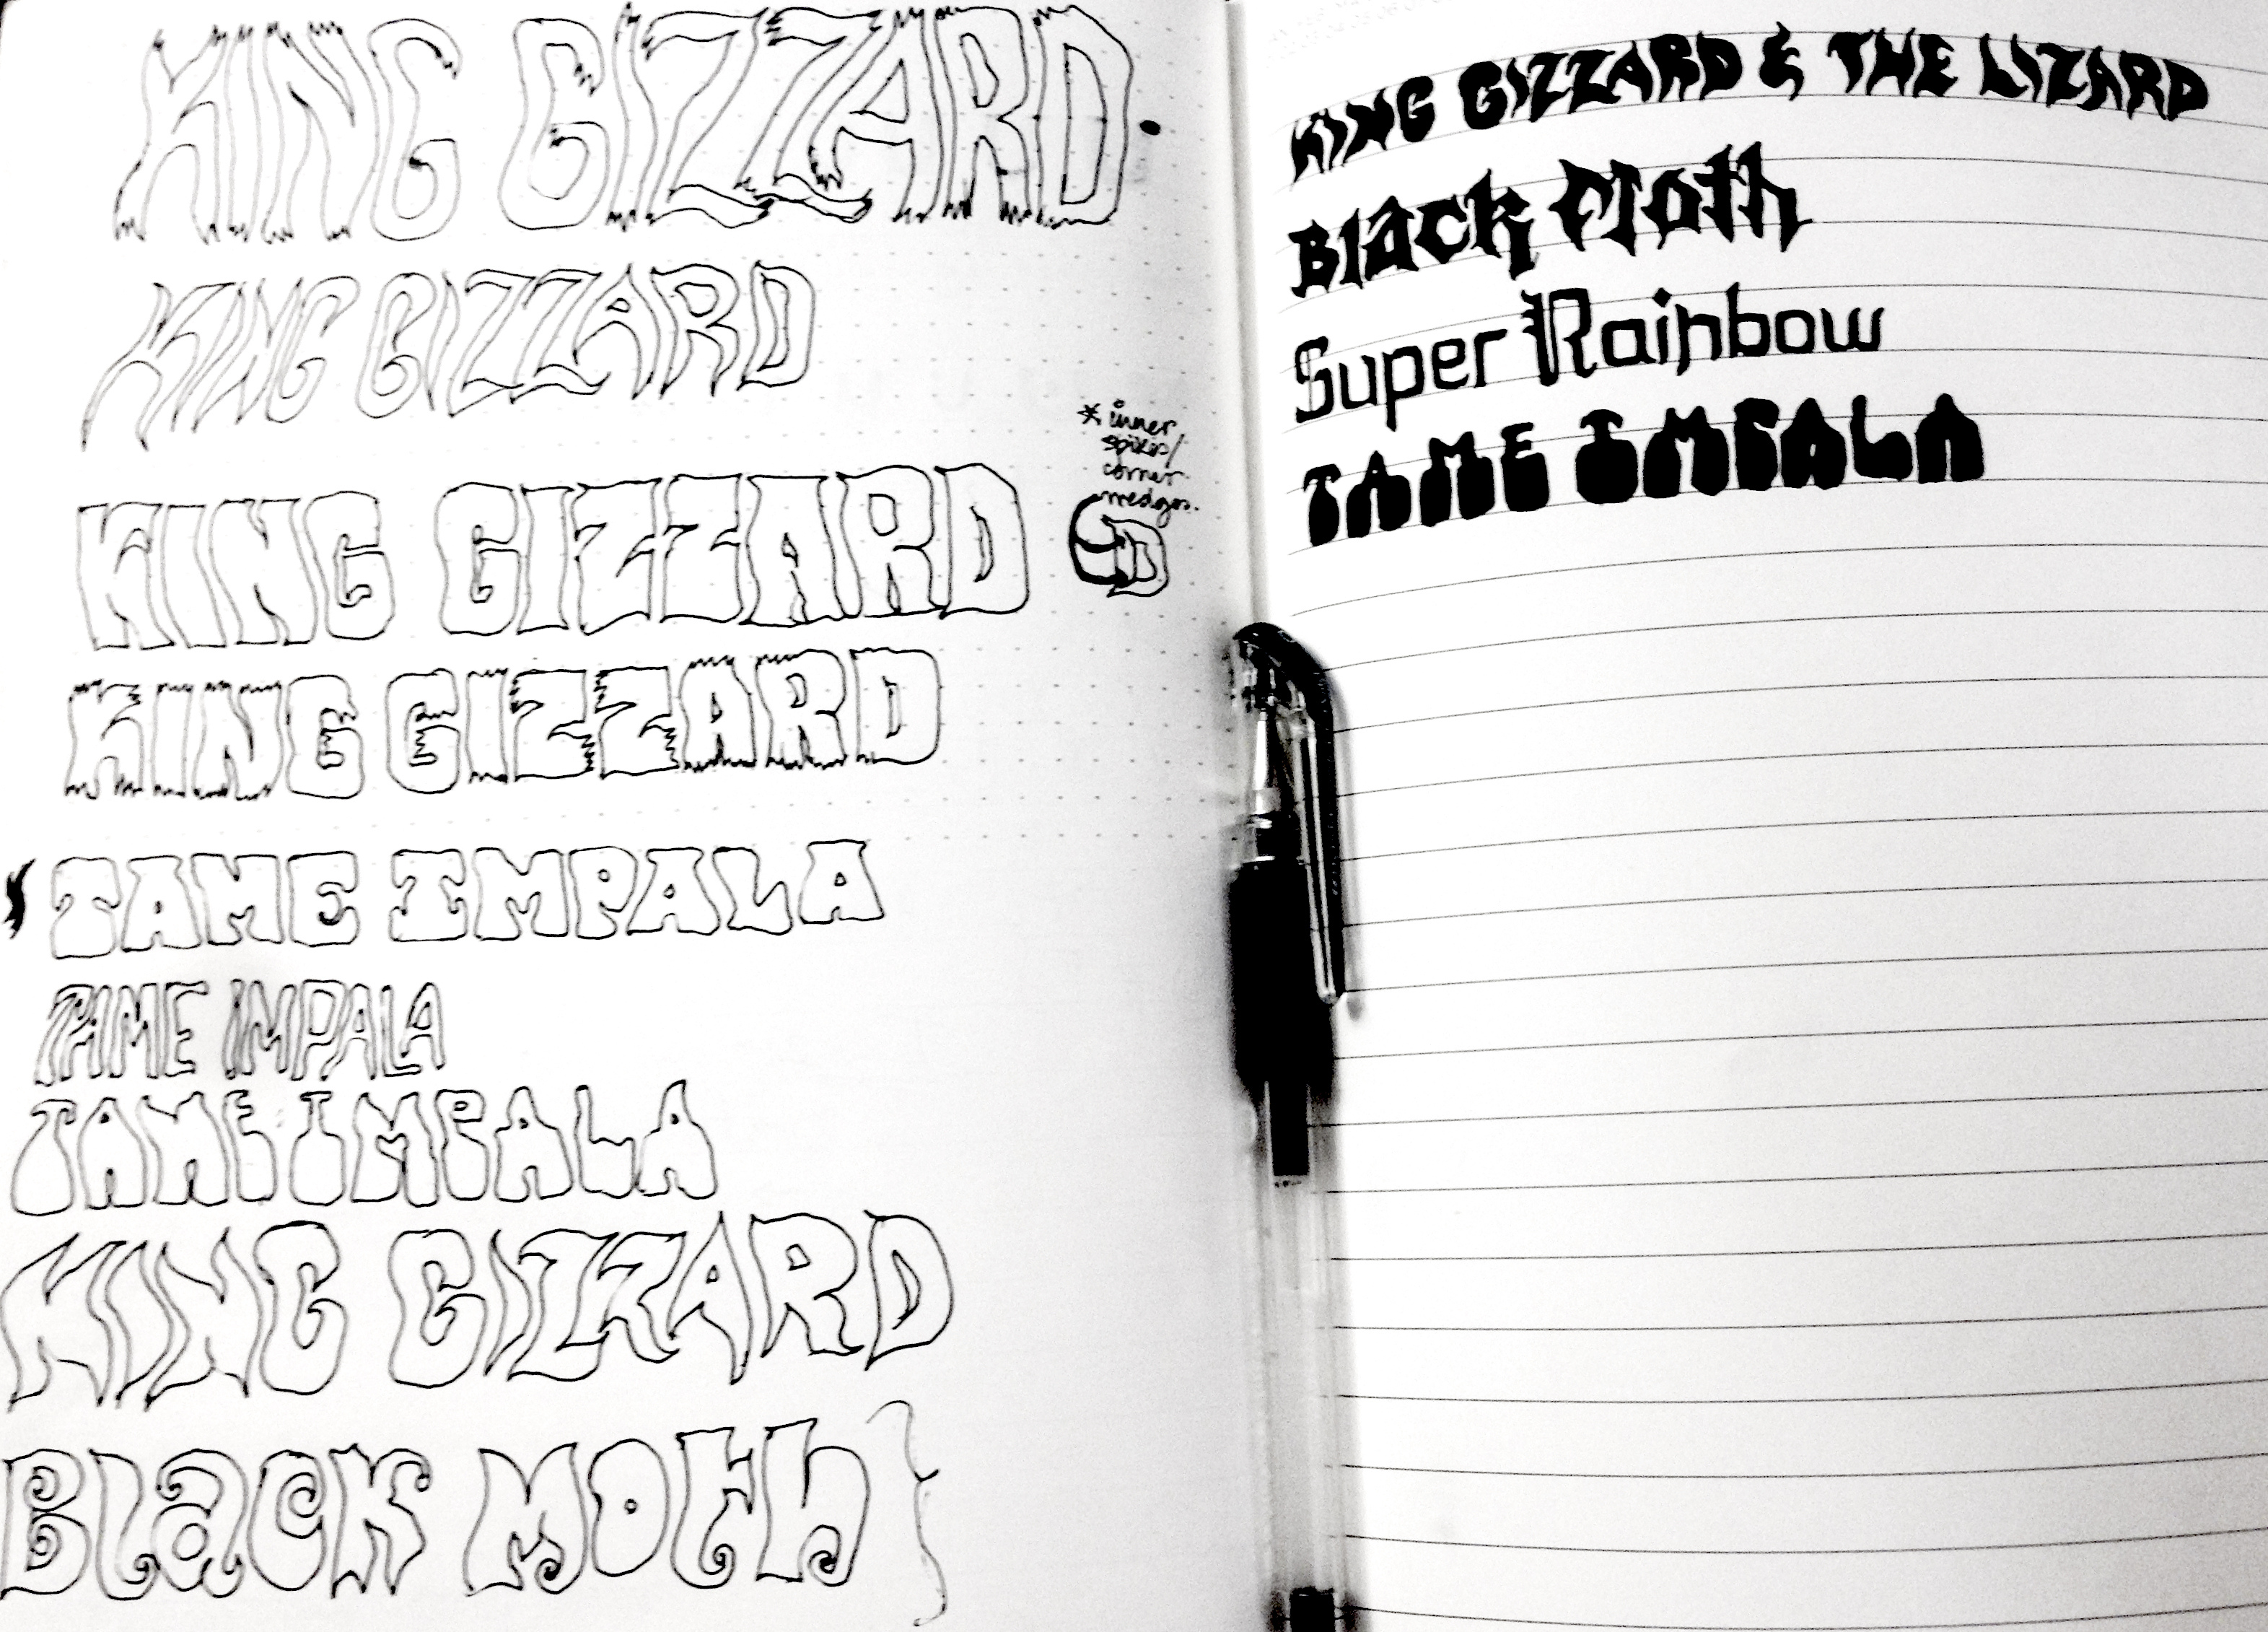 KING GIZZARD.
KING GIZZARD
* inner
spikes/
corner
wedges.
KING GIZZARD
D
KING GIZZARD
TAME IMPALA
TAME IMPALA
TAME IMPALA
KING GIZZARD
Black Moth
KING GIZZARD & THE LIZARD
Black Moth
Super Rainbow
TAME IMPALA